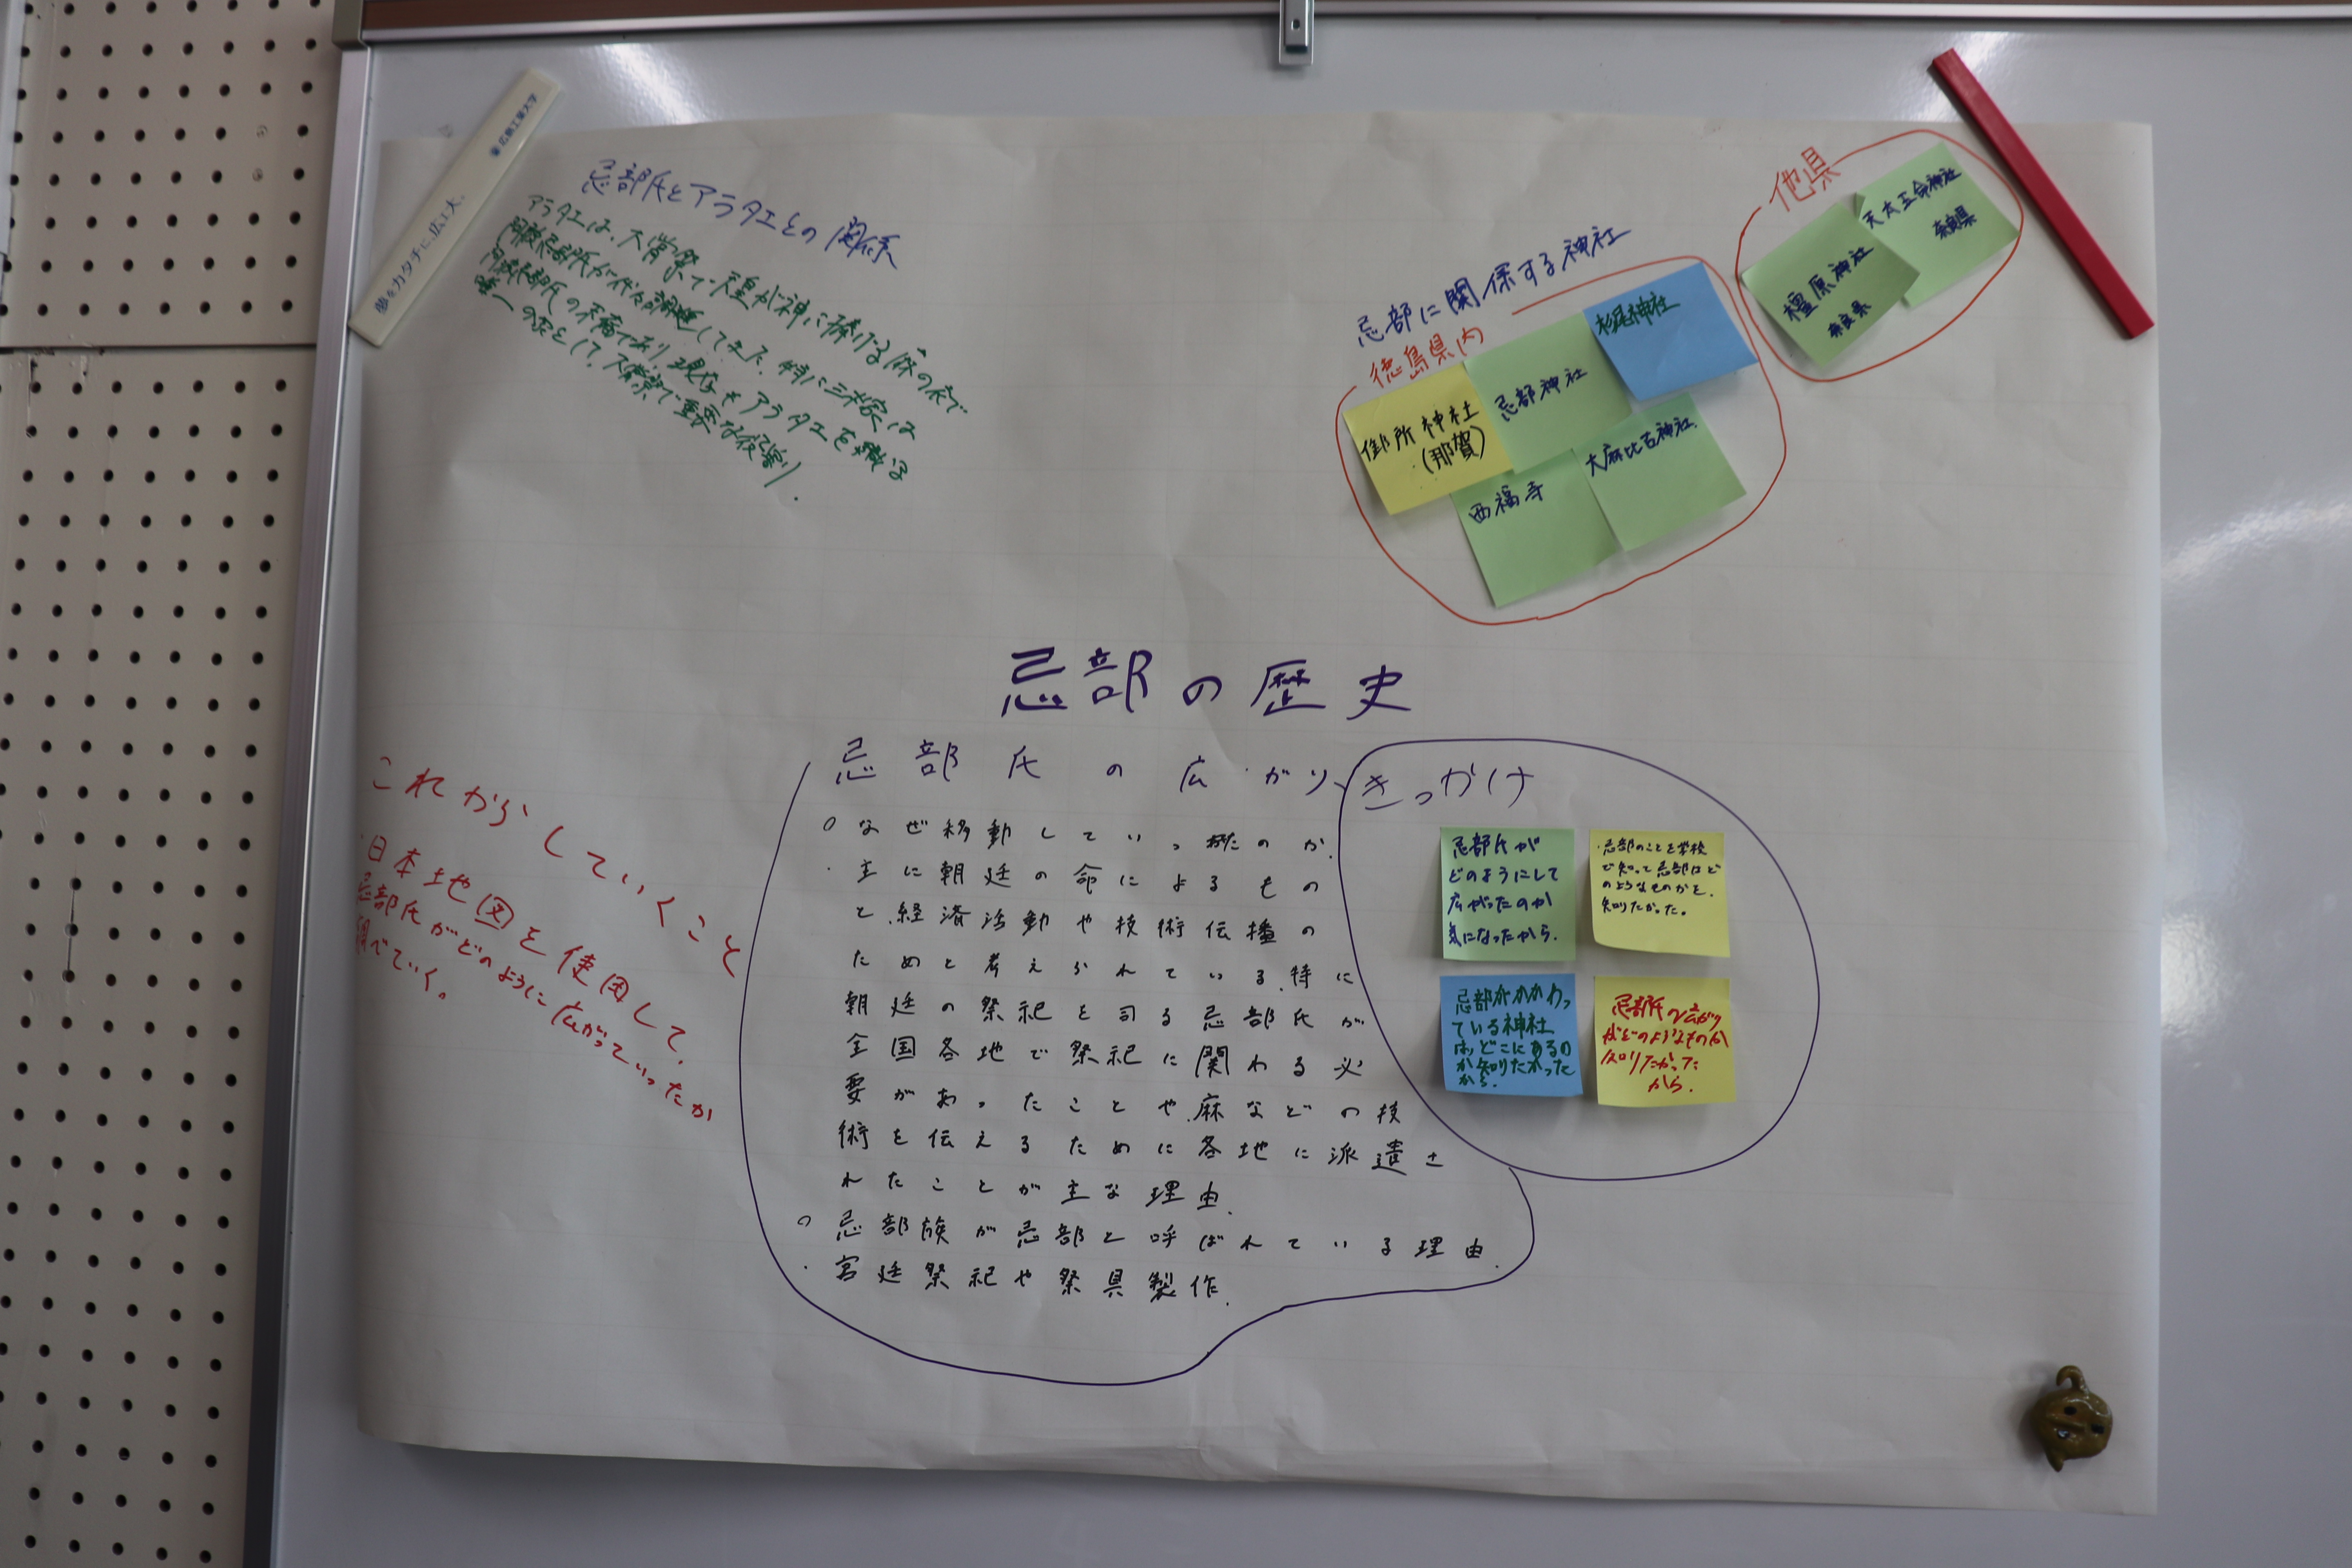 夢をカタチに、広工大。
広島工業大学
忌部氏とアラタエとの関係
アラタエは、大嘗祭で天皇が神に捧げる麻の衣で
阿波忌部氏が代々調進してきた。特に三木家は
阿波忌部氏の末裔であり、現在もアラタエを織る
唯一の家として、大嘗祭で重要な役割り.
忌部に関係する神社
徳島県内
御所神社
(那賀)
忌部神社
杉尾神社
西福寺
大麻比古神社
他県
橿原神社
奈良県
天太玉命神社
奈良県
忌部の歴史
忌部氏の広がり
○なぜ移動していったのか.
・主に朝廷の命によるもの
と、経済活動や技術伝播の
ためと考えられている。特に
朝廷の祭祀を司る忌部氏が
全国各地で祭祀に関わる必
要があったことや、麻などの技
術を伝えるために各地に派遣さ
れたことが主な理由.
○忌部族が忌部と呼ばれている理由.
・宮廷祭祀や祭具製作.
きっかけ
忌部氏が
どのようにして
広がったのか
気になったから.
・忌部のことを学校
で知って忌部はど
のようなものかを、
知りたかった。
忌部がかかわっ
ている神社
は、どこにあるの
か知りたかった
から.
忌部氏の広がり
がどのようなものか
知りたかった
から.
これからしていくこと
・日本地図を使用して、
忌部氏がどのように広がっていったか
調べていく。